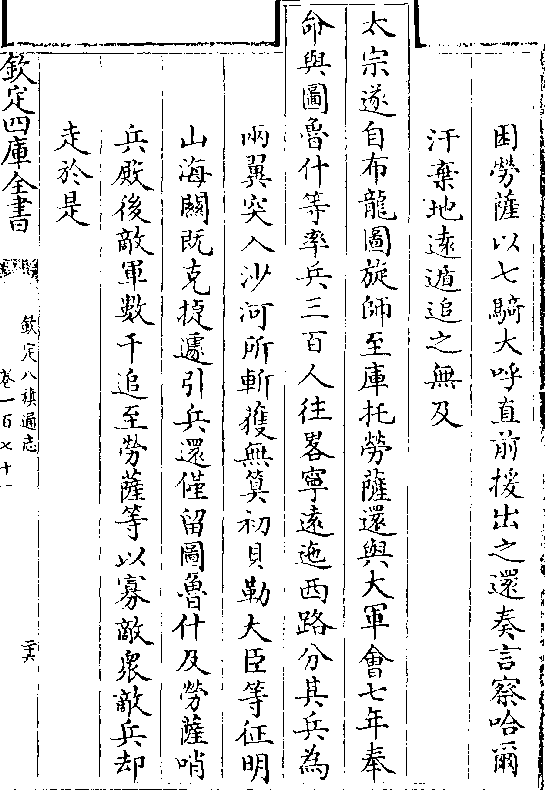 困勞薩以七騎大呼直前援出之還奏言察哈爾
汗棄地遠遁追之無及
太宗遂自布龍圖旋師至庫托勞薩還與大軍會七年奉
命與圖魯什等率兵三百人往畧寧遠迤西路分其兵為
兩翼突入沙河所斬獲無算初貝勒大臣等征明
山海關既克捷遽引兵還僅留圖魯什及勞薩哨
兵殿後敵軍數千追至勞薩等以寡敵衆敵兵却
走於是
欽定四庫全書
欽定八旗通志
卷一百七十一
二十六